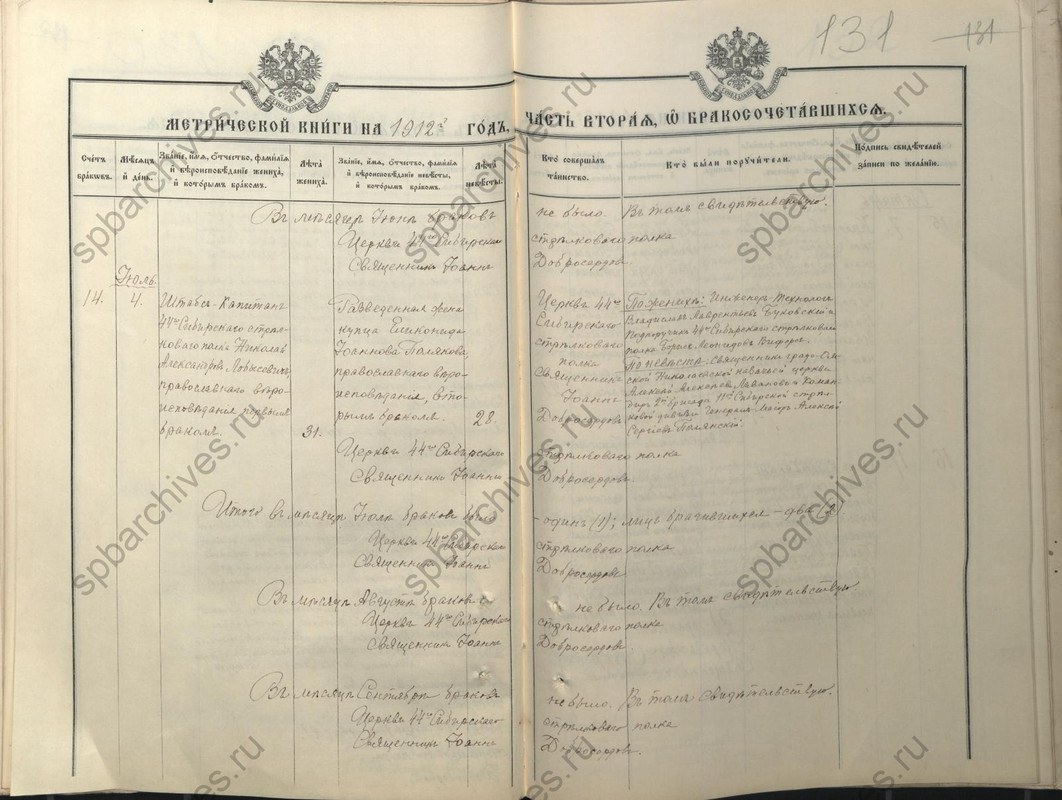 131
131
МЕТРИЧЕСКОЙ КНИГИ НА 1912й ГОДЪ, ЧАСТЬ ВТОРАЯ, Ѿ БРАКОСОЧЕТАВШИХСЯ.
Счетъ браковъ.
Мѣсяцъ и день.
Званіе, имя, отчество, фамилія и вѣроисповѣданіе жениха, и которымъ бракомъ.
Лѣта жениха.
Званіе, имя, отчество, фамилія и вѣроисповѣданіе невѣсты, и которымъ бракомъ.
Лѣта невѣсты.
Кто совершалъ таинство.
Кто были поручители.
Подпись свидѣтелей записи по желанію.
Въ мѣсяцѣ Іюнѣ браковъ не было. Въ томъ свидѣтельствую:
Церкви 44го Сибирскаго стрѣлковаго полка
Священникъ Іоаннъ Добросердовъ.
Іюль
14.
4.
Штабсъ-Капитанъ
44го Сибирскаго стрѣл-
коваго полка Николай
Александровъ
православнаго вѣро-
исповѣданія первымъ
бракомъ.
31.
Разведенная жена
купца
Іоаннова Полякова,
православнаго вѣро-
исповѣданія, вто-
рымъ бракомъ.
28.
Церкви 44го
Сибирскаго
стрѣлковаго
полка
Священникъ
Іоаннъ
Добросердовъ
По женихѣ: Инженеръ-Технологъ
Владиславъ Лаврентьевъ Буковскій и
Подпоручикъ 44го Сибирскаго стрѣлковаго
полка Борисъ Леонидовъ
По невѣстѣ: Священникъ градо-Ом-
ской Николаевской казачьей церкви
Алексѣй Алексѣевъ и Коман-
диръ 2й бригады 11й Сибирской стрѣл-
ковой дивизіи Генералъ-Маіоръ Алексѣй
Сергѣевъ Полянскій.
Церкви 44го Сибирскаго стрѣлковаго полка
Священникъ Іоаннъ Добросердовъ.
Итого въ мѣсяцѣ Іюлѣ браковъ было - одинъ (1); лицъ брачившихся - два (2)
Церкви 44го Сибирскаго стрѣлковаго полка
Священникъ Іоаннъ Добросердовъ
Въ мѣсяцѣ Августѣ браковъ не было. Въ томъ свидѣтельствую:
Церкви 44го Сибирскаго стрѣлковаго полка
Священникъ Іоаннъ Добросердовъ.
Въ мѣсяцѣ Сентябрѣ браковъ не было. Въ томъ свидѣтельствую:
Церкви 44го Сибирскаго стрѣлковаго полка
Священникъ Іоаннъ Добросердовъ.
spbarchives.ru
spbarchives.ru
spbarchives.ru
spbarchives.ru
spbarchives.ru
spbarchives.ru
spbarchives.ru
spbarchives.ru
spbarchives.ru